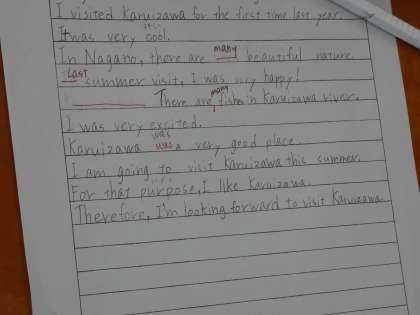 I visited Karuizawa for the first time last year.
It was very cool.
In Nagano, there are many beautiful nature.
Last summer visit, I was very happy!
There are many fishes in Karuizawa river.
I was very excited.
Karuizawa was a very good place.
I am going to visit Karuizawa this summer.
For that purpose, I like Karuizawa.
Therefore, I'm looking forward to visit Karuizawa.